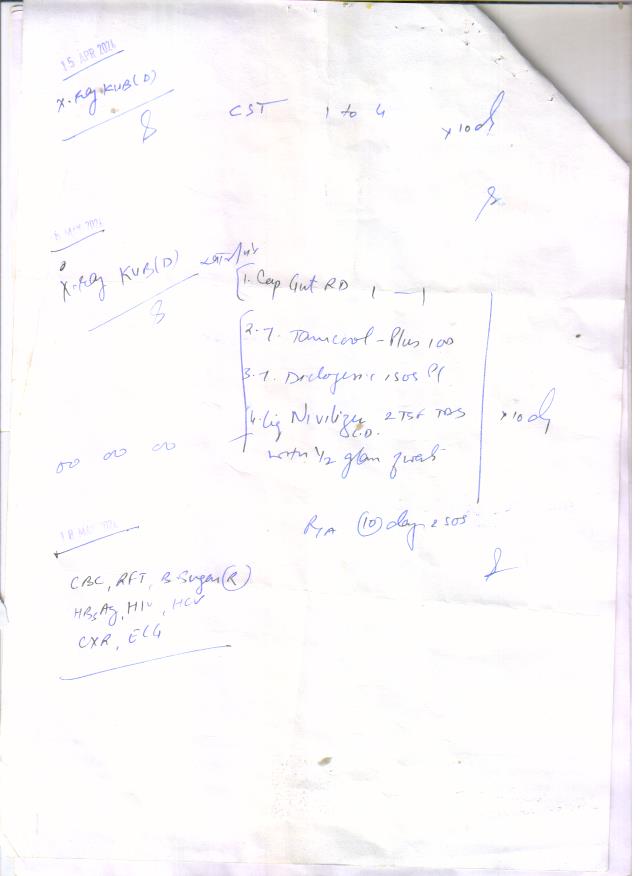 15 APR 2024
X-Ray KUB(D)
CST 1 to 4 x 10 d
MAY 2024
X-Ray KUB(D)
1. Cap Gut RD 1 — 1
2. T. Tamcool-Plus 100
3. T. 1 SOS
4. 2 TSF TDS
with 1/2 glass
x 10 d
R/A (10) day 2 SOS
18 MAY 2024
CBC, RFT, B-Sugar (R)
HBsAg, HIV, HCV
CXR, ECG